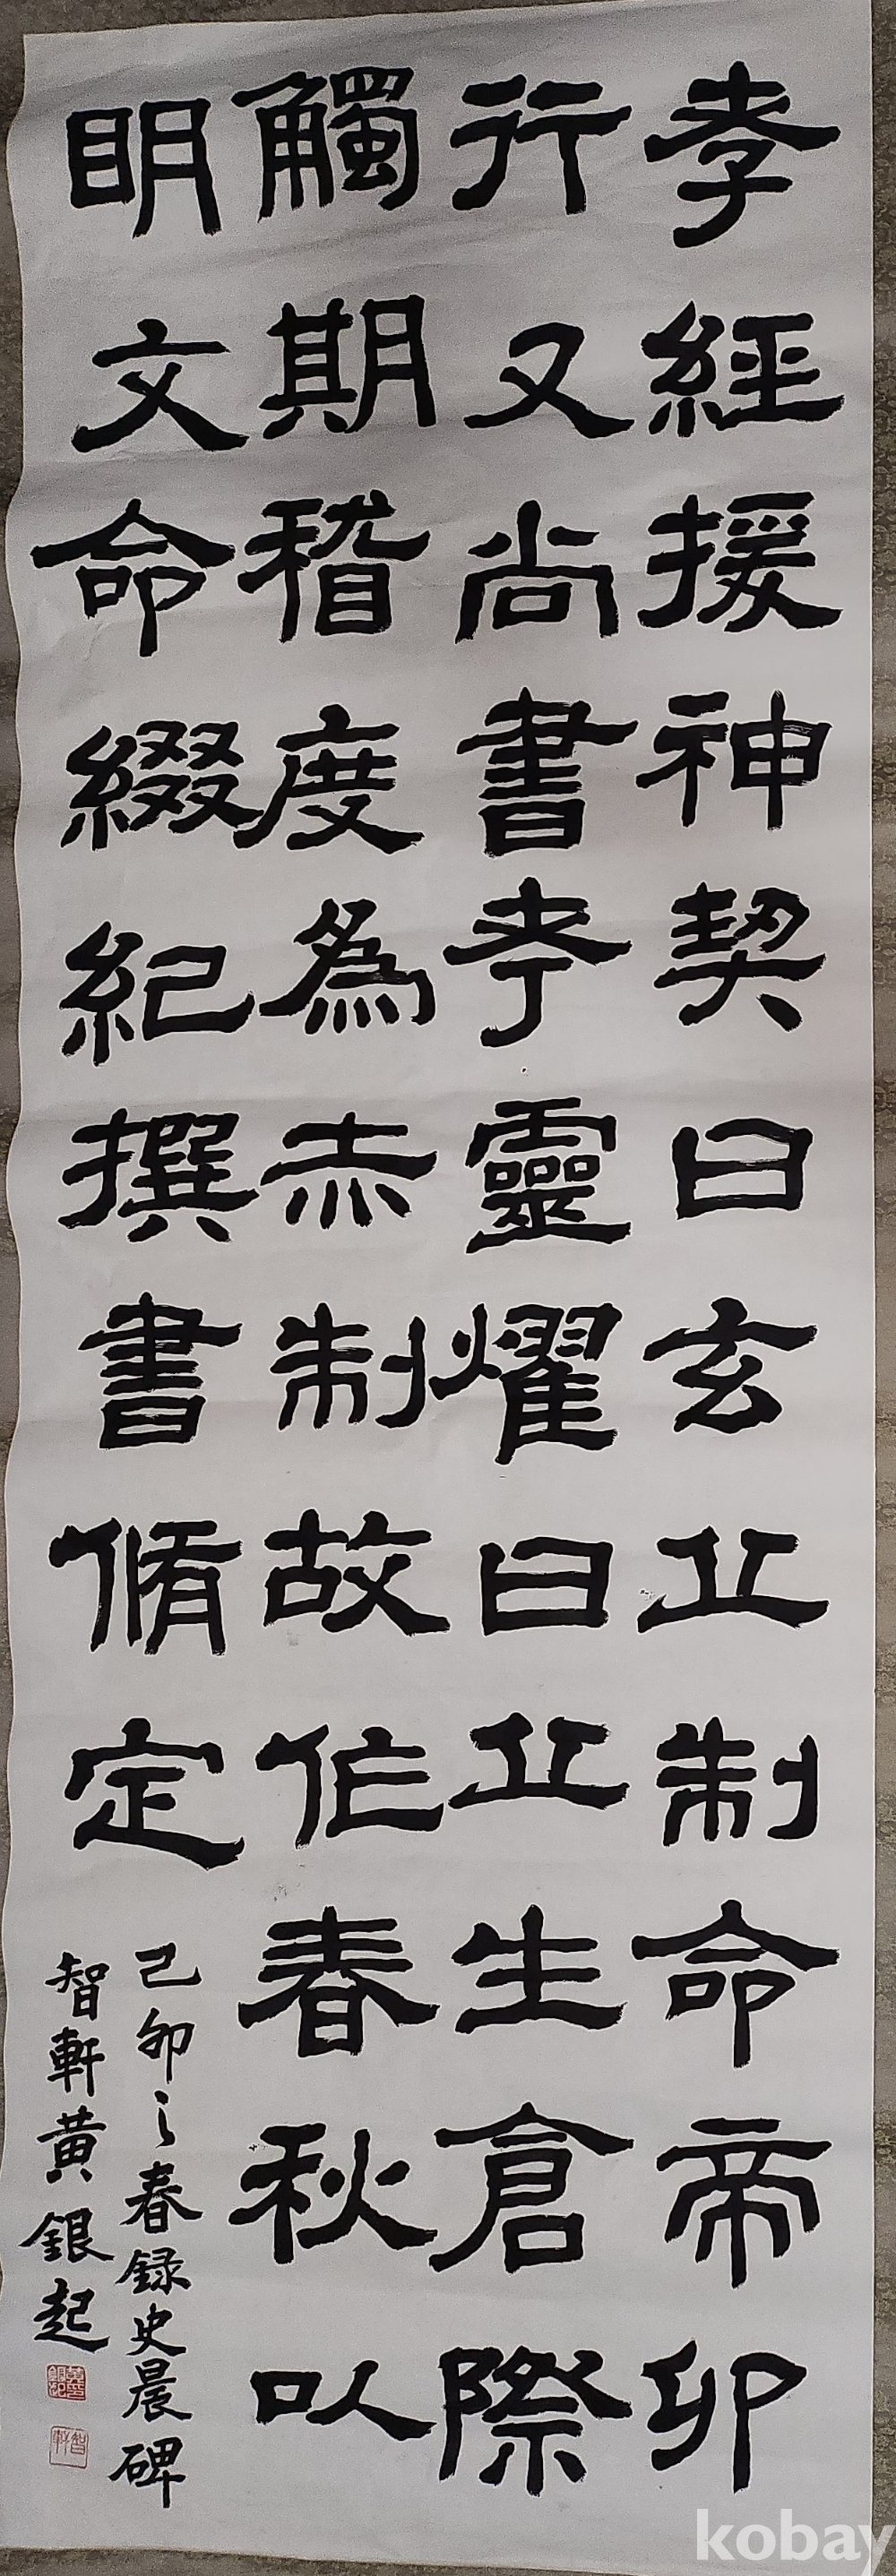 孝經援神挈曰玄丘制命帝卯
行又尚書考靈燿曰丘生倉際
觸期稽度為赤制故作春秋以
明文命綴紀撰書脩定
己卯之春録史晨碑
智軒黄銀起
智軒
kobay